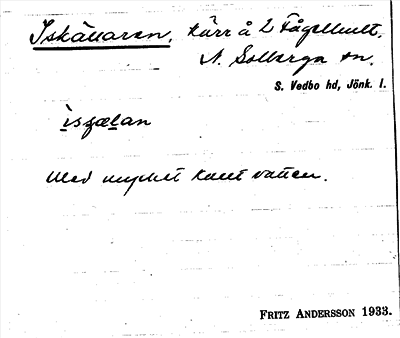 Iskällaren, kärr å 2 Fågelhult,
N. Solberga sn.
S. Vedbo hd, Jönk. l.
Med mycket kallt vatten.
FRITZ ANDERSSON 1933.